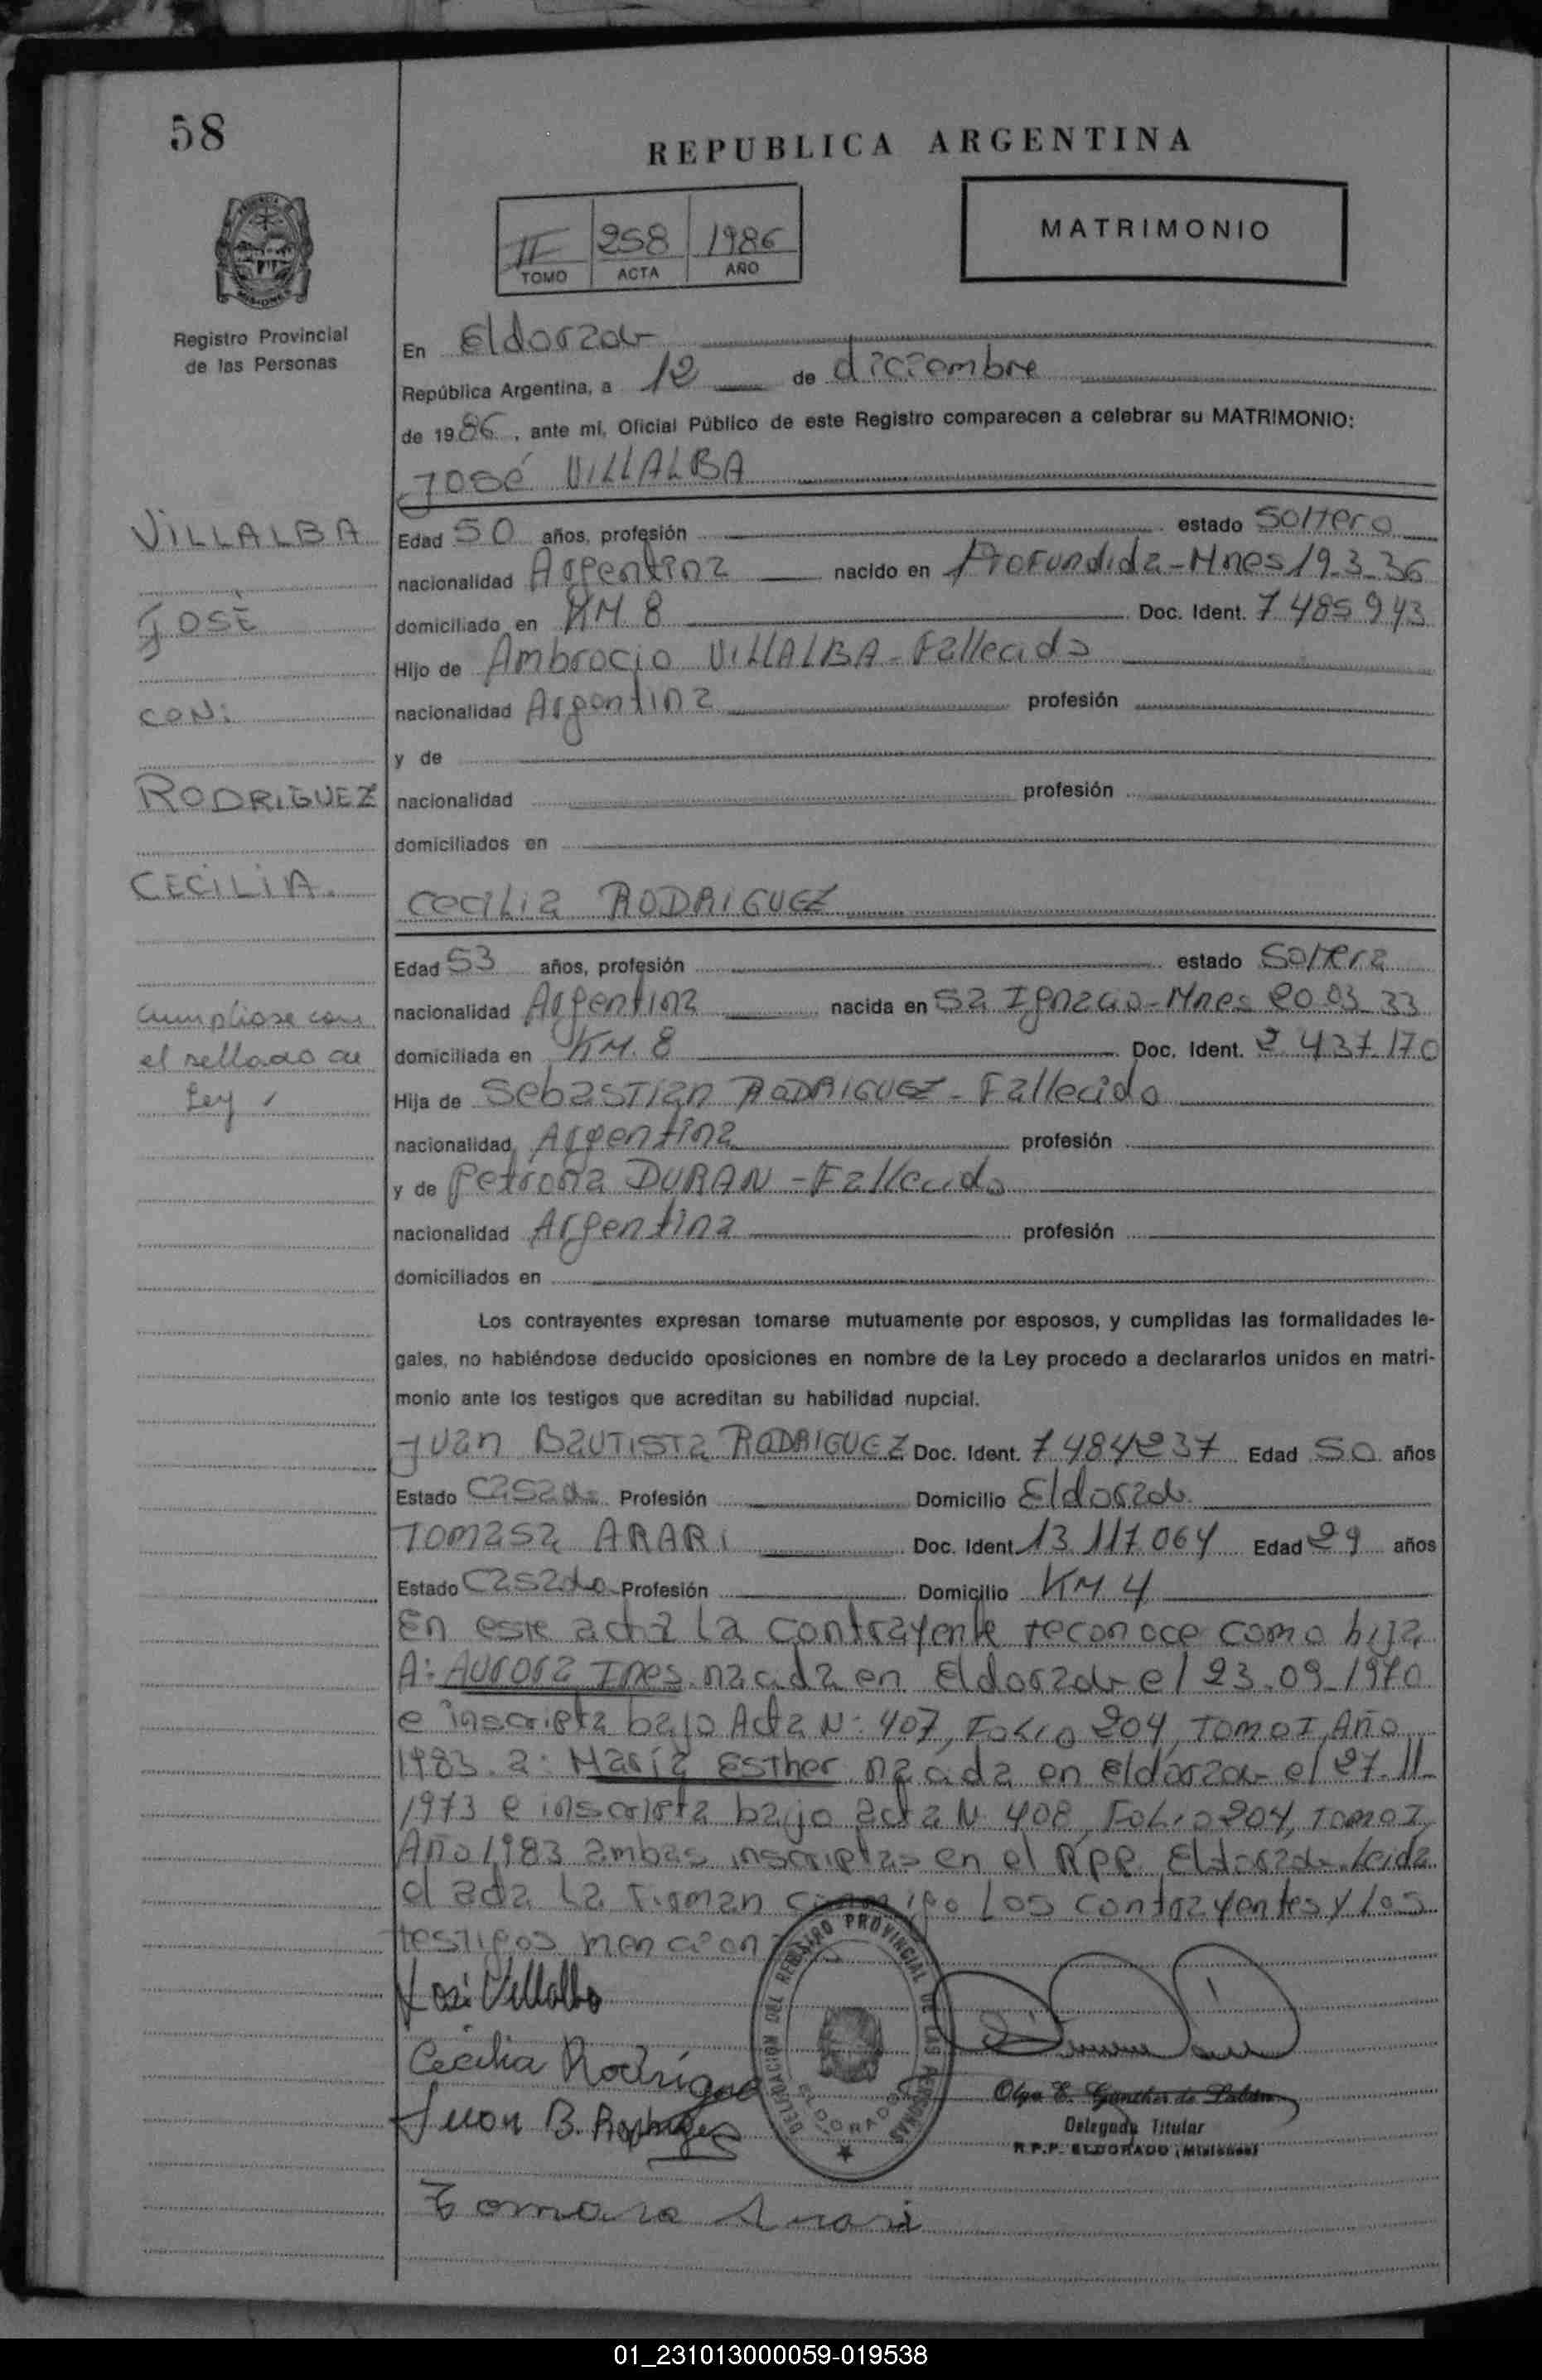 58
REPUBLICA ARGENTINA
II 258 1986
TOMO ACTA AÑO
MATRIMONIO
Registro Provincial
de las Personas
En Eldorado
República Argentina, a 12 de diciembre
de 1986, ante mi, Oficial Público de este Registro comparecen a celebrar su MATRIMONIO:
José VILLALBA
VILLALBA
JOSÉ
CON:
RODRIGUEZ
CECILIA.
Cumpliose con
el sellado de
Ley
Edad 50 años, profesión estado Soltero
nacionalidad Argentina nacido en Profundida-Mnes 19.3.36
domiciliado en KM. 8 Doc. Ident. 7.485.943
Hijo de Ambrocio VILLALBA-Fallecido
nacionalidad Argentina profesión
y de
nacionalidad profesión
domiciliados en
Cecilia RODRIGUEZ
Edad 53 años, profesión estado Soltera
nacionalidad Argentina nacida en Sa Ignacio-Mnes 20.03.33
domiciliada en KM. 8 Doc. Ident. 2.437.170
Hija de Sebastian RODRIGUEZ-Fallecido
nacionalidad Argentina profesión
y de Petrona DURAN-Fallecido
nacionalidad Argentina profesión
domiciliados en
Los contrayentes expresan tomarse mutuamente por esposos, y cumplidas las formalidades le-
gales, no habiéndose deducido oposiciones en nombre de la Ley procedo a declararlos unidos en matri-
monio ante los testigos que acreditan su habilidad nupcial.
Juan Bautista RODRIGUEZ Doc. Ident. 7.484.237 Edad 50 años
Estado Casado Profesión Domicilio Eldorado
Tomasa ARARI Doc. Ident. 13.117.064 Edad 29 años
Estado Casado Profesión Domicilio KM. 4
En este acta la contrayente reconoce como hija
A: Aurora Ines nacida en Eldorado el 23.09.1970
e inscripta bajo Acta N: 407, Folio 204, Tomo I, Año
1983. a: María Esther nacida en Eldorado el 27.11.
1973 e inscripta bajo acta N 408, Folio 204, Tomo I,
Año 1983 ambas inscriptas en el RPP. Eldorado. leida
el acta la firman conmigo los contrayentes y los
testigos mencion
José Villalba
Cecilia Rodrígue
Juan B. Rodriguez
Tomasa Arari
DELEGACION DEL REGISTRO PROVINCIAL DE LAS PERSONAS
ELDORADO
Olga E. Günther de
Delegada Titular
R.P.P. ELDORADO (Misiones)
01_231013000059-019538